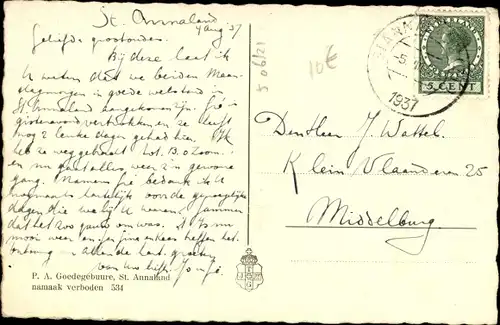 St. Annaland
4 Aug '37
Geliefde grootouders.
Bij deze laat ik
U weten dat we beiden Maan-
dagmorgen in goede welstand in
St Annaland aangekomen zijn. Jie is
gisteravond vertrokken en ze heeft
nog 2 leuke dagen gehad hier. Ik
heb ze weggebracht tot B.o Zoom.
en nu gaat alles weer z'n gewone
gang. Namens Jie bedank ik U
nogmaals hartelijk voor de gezellige
dagen die we bij U waren, jammer
dat het zoo gauw om was. 't is nu
mooi weer en
van
P. A. Goedegebuure, St. Annaland
namaak verboden 534
5 06121
10€
ST ANNA
-5
1937
NEDERLAND
5 CENT
Den Heer J. Wattel.
Klein Vlaanderen 25
Middelburg